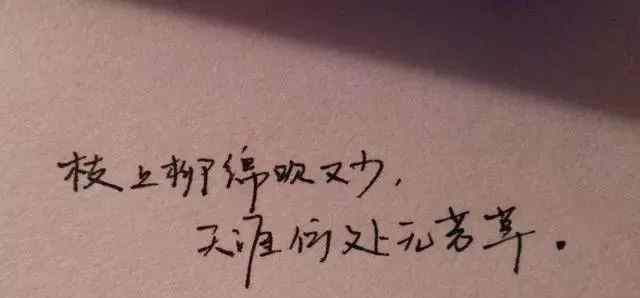 枝上柳绵吹又少，
天涯何处无芳草。